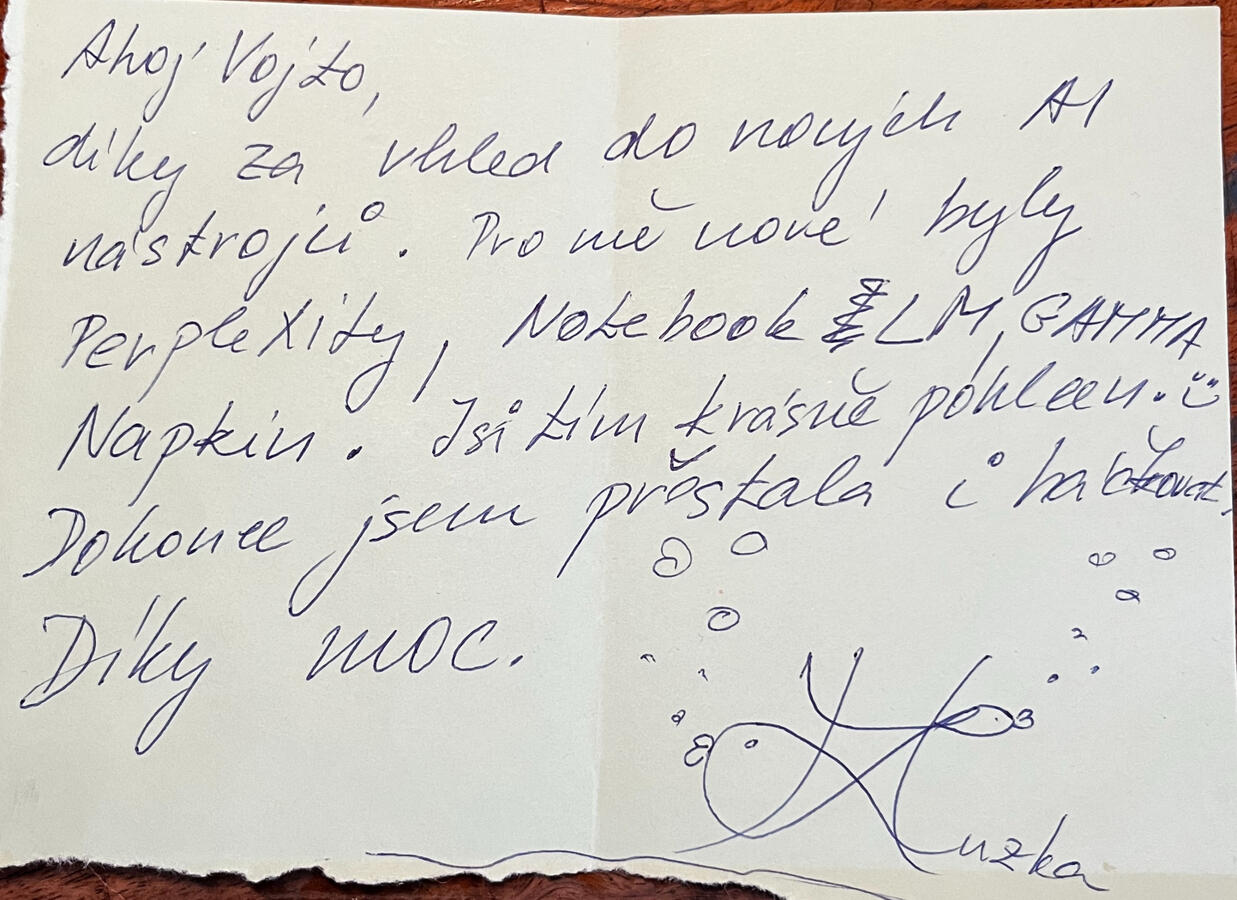 Ahoj Vojto,
díky za vhled do nových AI
nástrojů. Pro mě nové byly
Perplexity, Notebook LM, GAMMA
Napkin. Jsi tím krásně pohlcen. :)
Dokonce jsem přestala i háčkovat.
Díky moc.
uzka